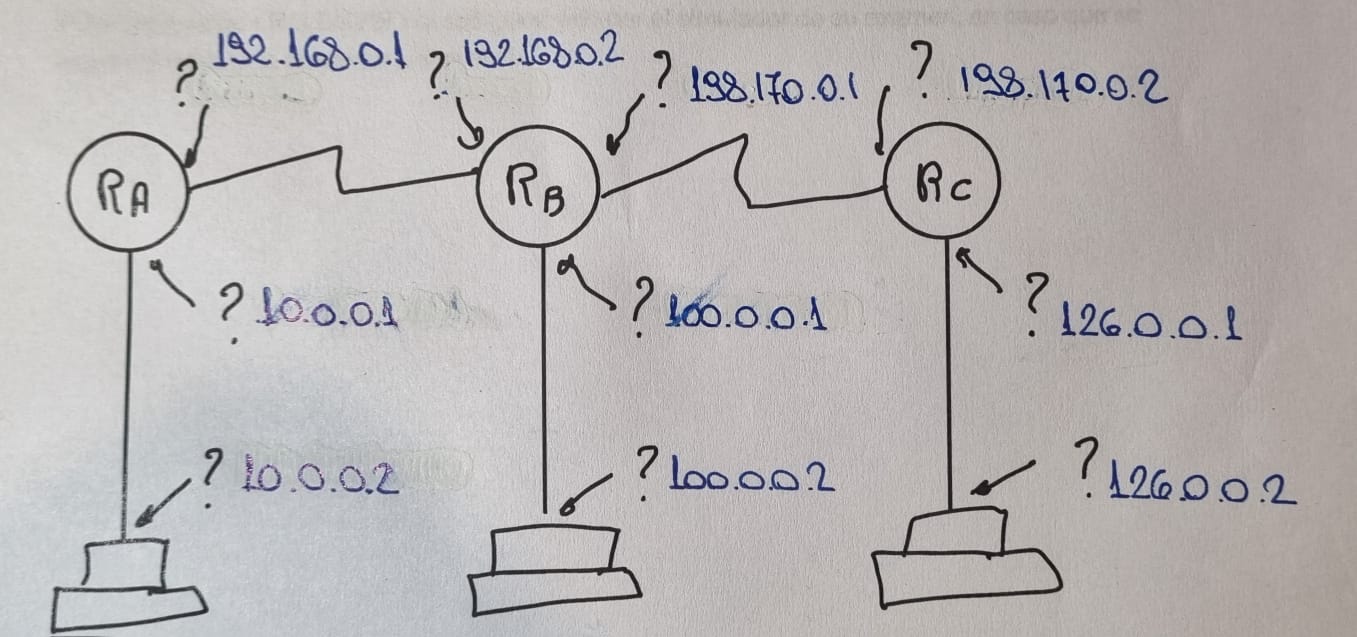 ? 192.168.0.1 ? 192.168.0.2 ? 198.170.0.1 ? 198.170.0.2
RA RB RC
? 10.0.0.1 ? 100.0.0.1 ? 126.0.0.1
? 10.0.0.2 ? 100.0.0.2 ? 126.0.0.2